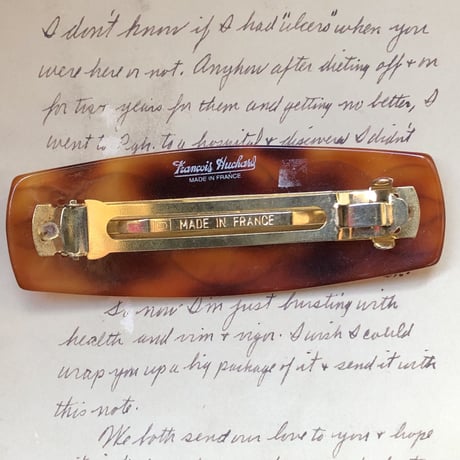 I don't know if I had "ulcers" when you
were here or not. Anyhow after dieting off & on
for two years for them and getting no better, I
went to Pgh. to a hospital & discovered I didn't
François Huchard
MADE IN FRANCE
MADE IN FRANCE
So now I'm just bursting with
health and vim & vigor. I wish I could
wrap you up a big package of it & send it with
this note.
We both send our love to you & hope